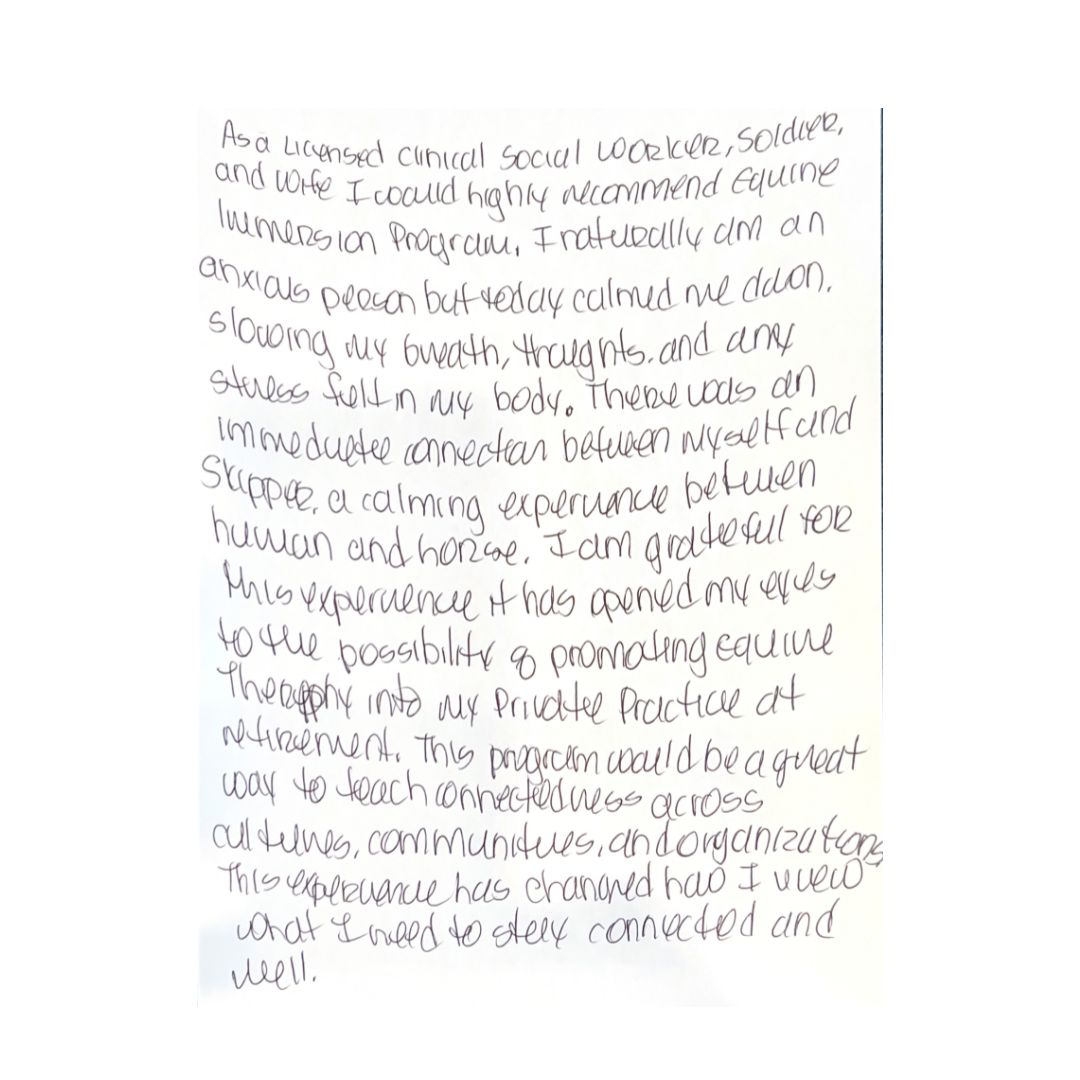 As a Licensed clinical social worker, soldier,
and wife I would highly recommend Equine
Immersion Program. I naturally am an
anxious person but today calmed me down.
slowing my breath, thoughts, and any
stress felt in my body. There was an
immediate connection between myself and
Skipper, a calming experience between
human and horse. I am grateful for
this experience it has opened my eyes
to the possibility of promoting equine
Theraphy into my Private Practice at
retirement. This program would be a great
way to teach connectedness across
cultures, communities, and organizations
This experience has changed how I view
what I need to stay connected and
well.